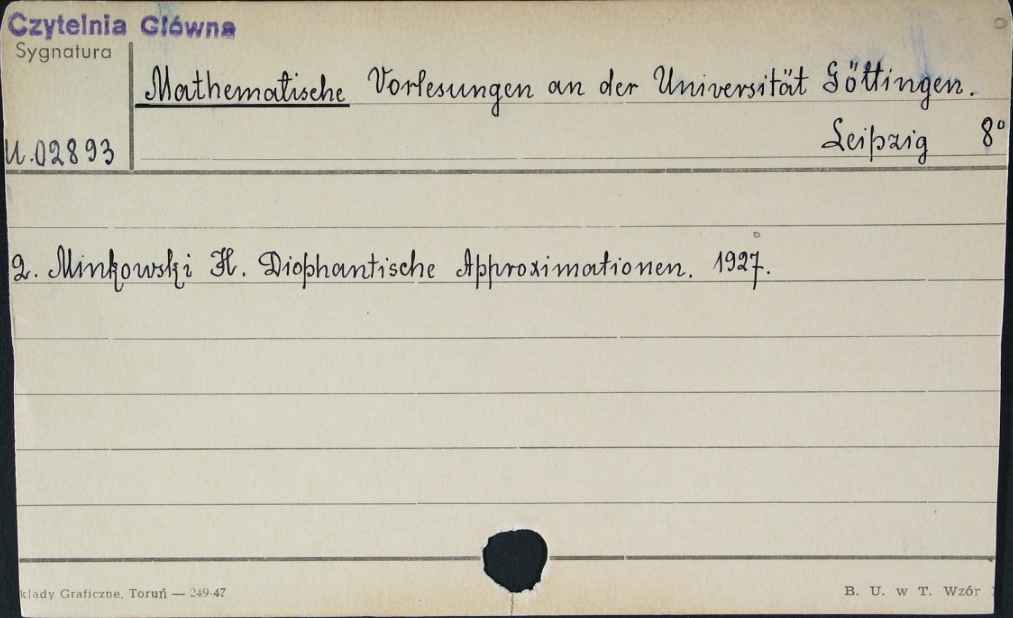 Czytelnia Główna
Sygnatura
Mathematische Vorlesungen an der Universität Göttingen.
Leipzig 8°
U.02893
2. Minkowski H. Diophantische Approximationen. 1927.
kłady Graficzne, Toruń — 249-47
B. U. w T. Wzór